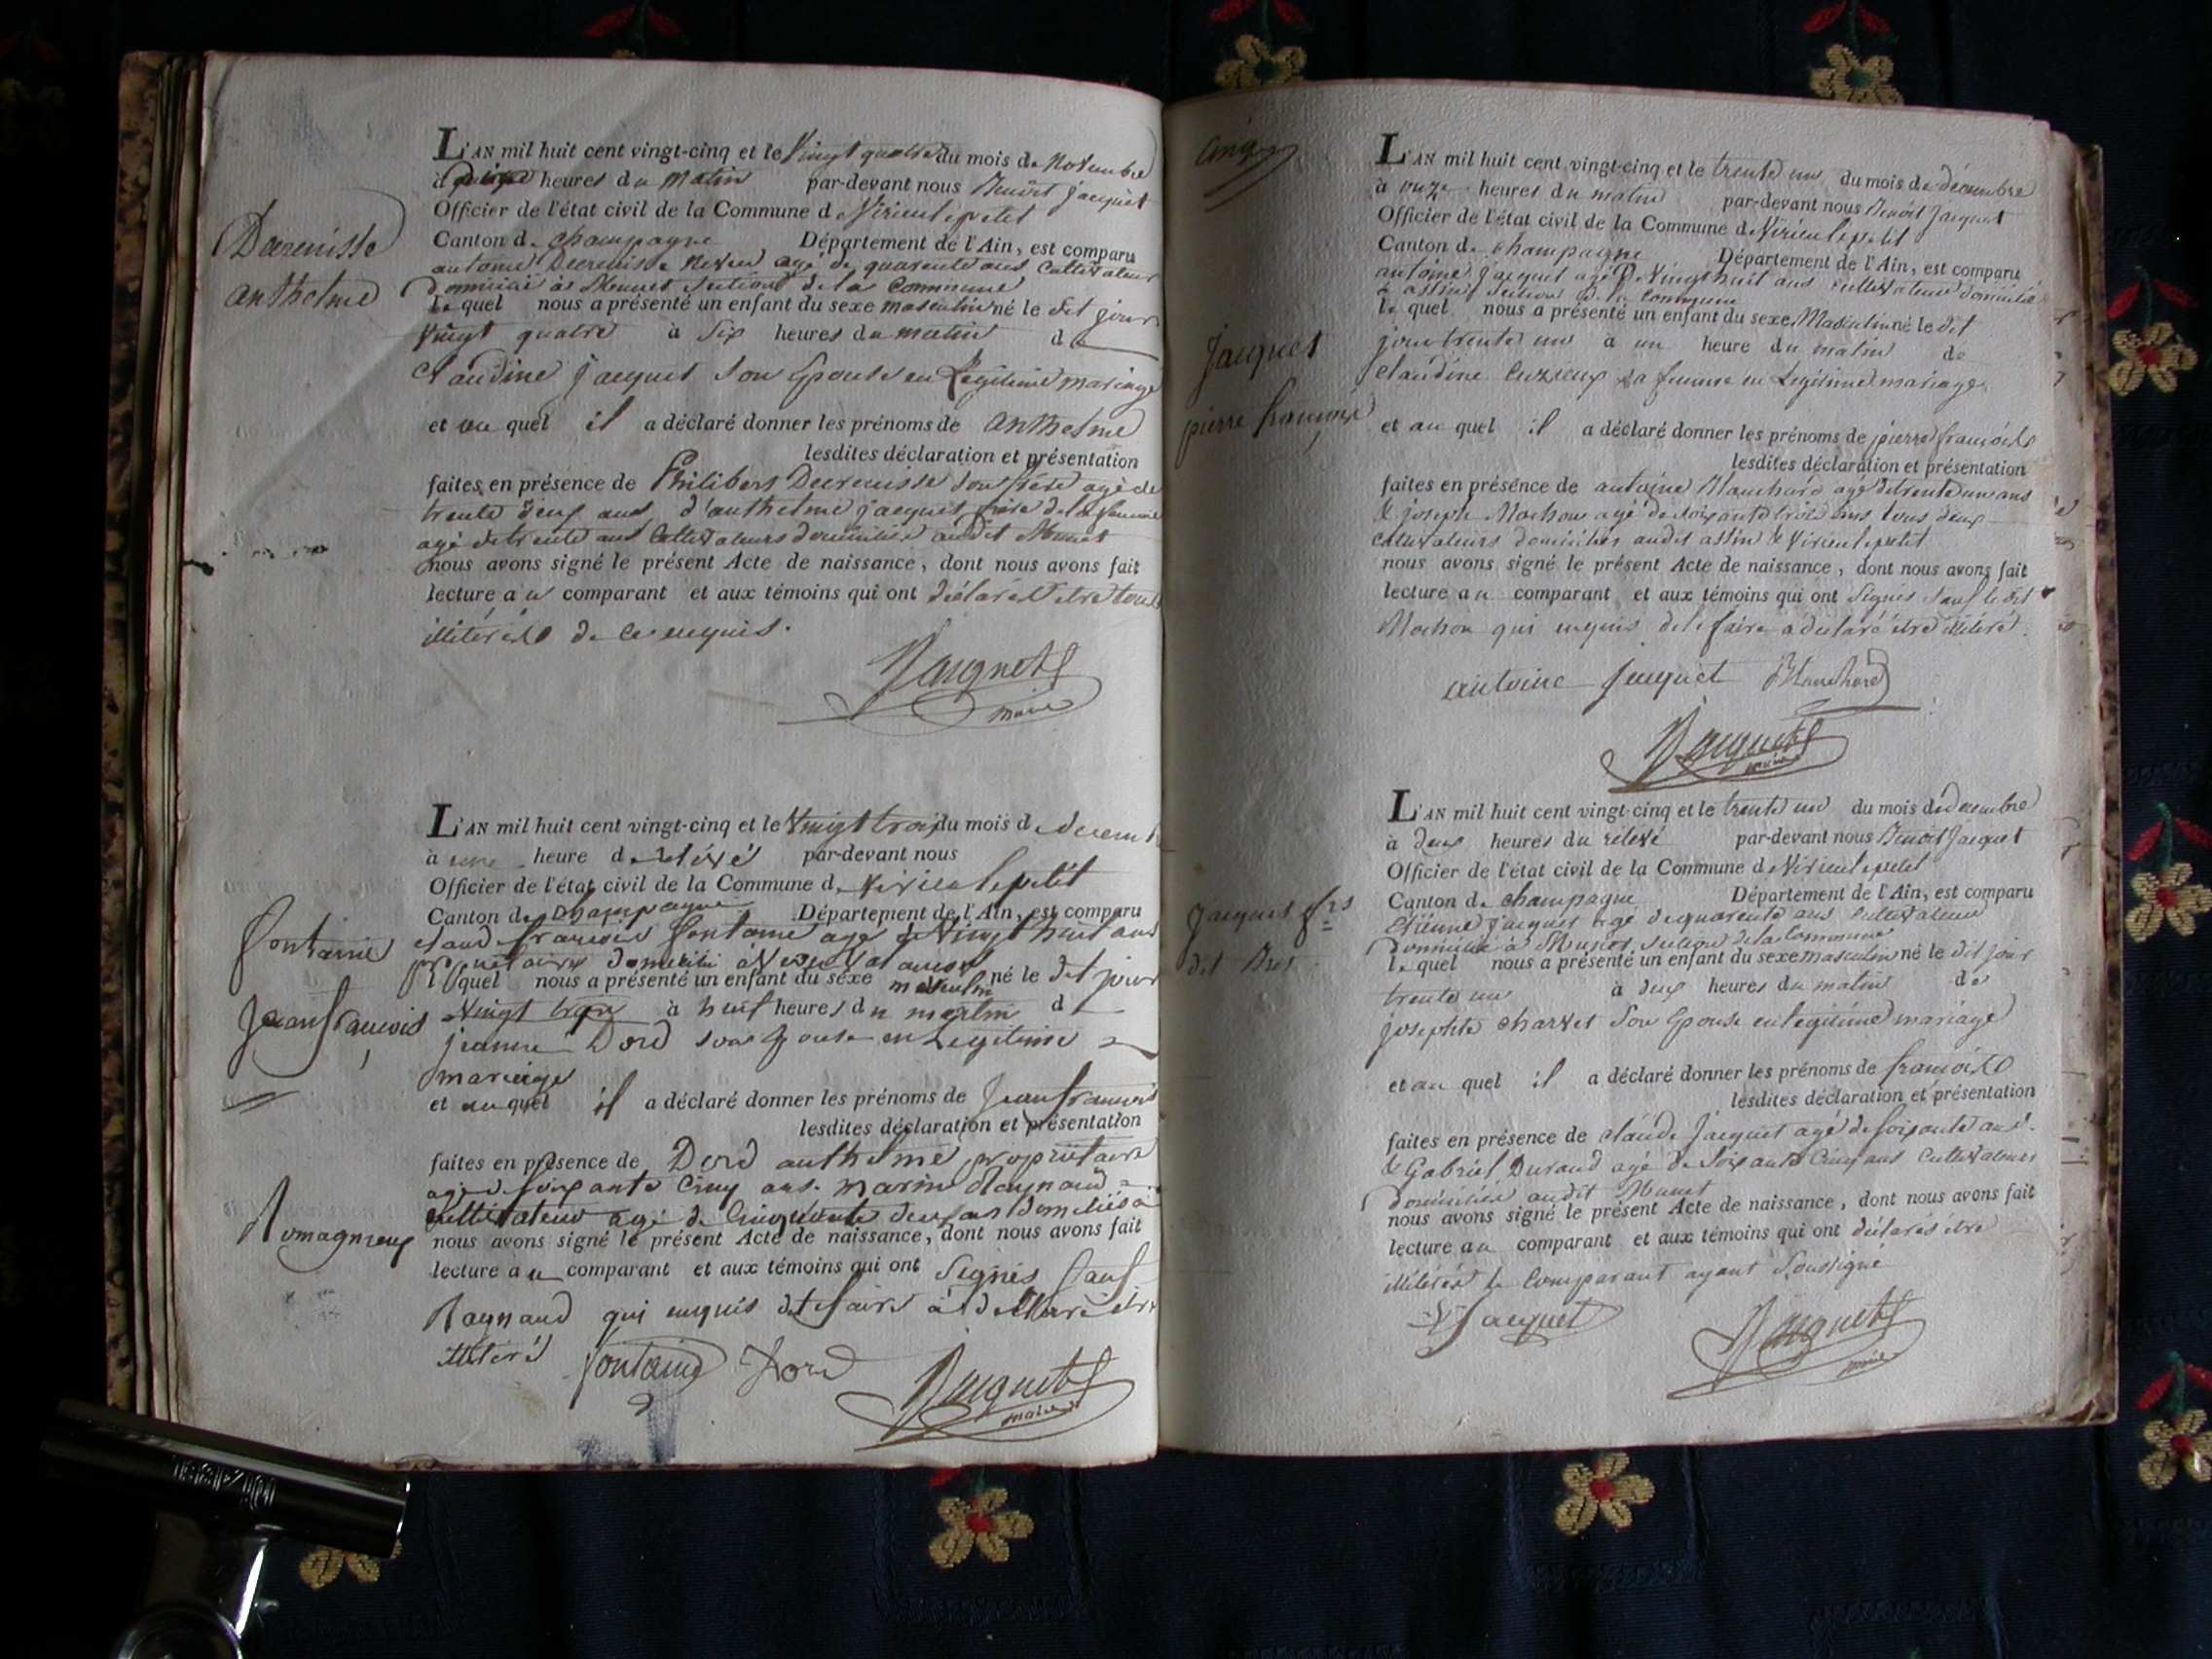 Decreuisse
anthelme
L'AN mil huit cent vingt-cinq et le Vingt quatre du mois de Novembre
à heures du matin par-devant nous Benoit jacquet
Officier de l'état civil de la Commune de Virieu le petit
Canton de champagne, Département de l'Ain, est comparu
antoine Decreuisse agé de quarente ans Cultivateur
Domicilié à Section de la Commune
Lequel nous a présenté un enfant du sexe masculin né le dit jour
Vingt quatre à Six heures du matin de
Claudine jacquet Son Epouse en Légitime mariage
et au quel il a déclaré donner les prénoms de anthelme
lesdites déclaration et présentation
faites en présence de Philibert Decreuisse Son frère agé de
trente deux ans, d'anthelme jacquet frère de la femme
agé de trente ans Cultivateurs domiciliés audit Munet
nous avons signé le présent Acte de naissance, dont nous avons fait
lecture au comparant et aux témoins qui ont déclarés être tous
illiterés de ce enquis.
Jacquet
maire
fontaine
Jean francois
Romagnieux
L'AN mil huit cent vingt-cinq et le Vingt trois du mois de decemb
à une heure de relévé par-devant nous
Officier de l'état civil de la Commune de Virieu le petit
Canton de Champagne Département de l'Ain, est comparu
claude francois fontaine agé de Vingt huit ans
propriétaire domicilié à
lequel nous a présenté un enfant du sexe masculin né le dit jour
Vingt trois à heures du matin de
jeanne Dord son Epouse en Legitime
mariage
et au quel il a déclaré donner les prénoms de Jean francois
lesdites déclaration et présentation
faites en présence de Dord anthelme propriétaire
agé de soixante Cinq ans. marin Raynaud
cultivateur agé de Cinquante deux ans Domiciliés à
nous avons signé le présent Acte de naissance, dont nous avons fait
lecture au comparant et aux témoins qui ont Signés Sauf
Raynaud qui enquis de le faire à declaré etre
illiteré
fontaine Dord
Jacquet
maire
cinq
Jacquet
pierre françois
L'AN mil huit cent vingt-cinq et le trente un du mois de décembre
à onze heures du matin par-devant nous Benoit Jacquet
Officier de l'état civil de la Commune de Virieu le petit
Canton de champagne Département de l'Ain, est comparu
antoine jacquet agé de Vingt huit ans cultivateur domicilié
à assin Section de la Commune
lequel nous a présenté un enfant du sexe Masculin né le dit
jour trente un à un heure du matin de
Claudine Cuzieux sa femme en Legitime mariage
et au quel il a déclaré donner les prénoms de pierre francois
lesdites déclaration et présentation
faites en présence de antoine Blanchard agé de trente un ans
& joseph Mochon agé de soixante trois ans tous deux
cultivateurs domiciliés audit assin & Virieu le petit
nous avons signé le présent Acte de naissance, dont nous avons fait
lecture au comparant et aux témoins qui ont Signés Sauf le dit
Mochon qui enquis de le faire a déclaré être illiteré.
antoine jacquet Blanchard
Jacquet
maire
Jacquet fcs
dit
L'AN mil huit cent vingt-cinq et le trente un du mois de decembre
à deux heures du relevé par-devant nous Benoit Jacquet
Officier de l'état civil de la Commune de Virieu le petit
Canton de champagne Département de l'Ain, est comparu
Etienne jacquet agé de quarente ans Cultivateur
Domicilié à Munet, section de la Commune
lequel nous a présenté un enfant du sexe masculin né le dit jour
trente un à deux heures du matin de
josephte charvet Son Epouse en legitime mariage
et au quel il a déclaré donner les prénoms de francois
lesdites déclaration et présentation
faites en présence de claude Jacquet agé de soixante ans.
& Gabriel Durand agé de Soixante Cinq ans Cultivateurs
domiciliés audit Munet
nous avons signé le présent Acte de naissance, dont nous avons fait
lecture au comparant et aux témoins qui ont déclarés être
illiterés le Comparant ayant Soussigné
Jacquet
Jacquet
maire